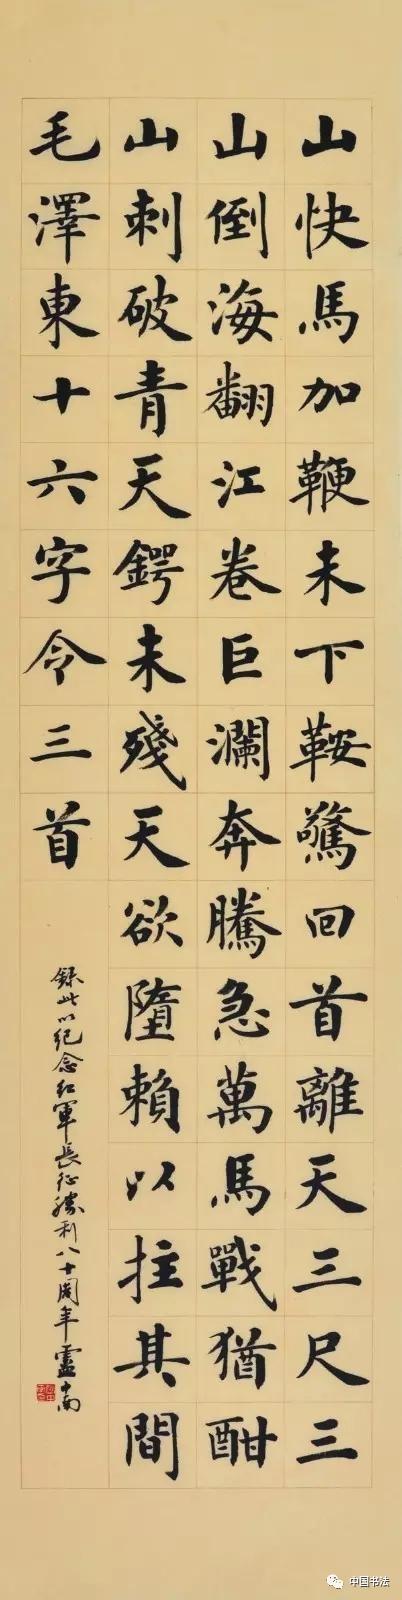 山快馬加鞭未下鞍驚回首離天三尺三
山倒海翻江卷巨瀾奔騰急萬馬戰猶酣
山刺破青天鍔未殘天欲墮賴以拄其間
毛澤東十六字令三首
錄此以紀念紅軍長征勝利八十周年 盧中南
中国书法